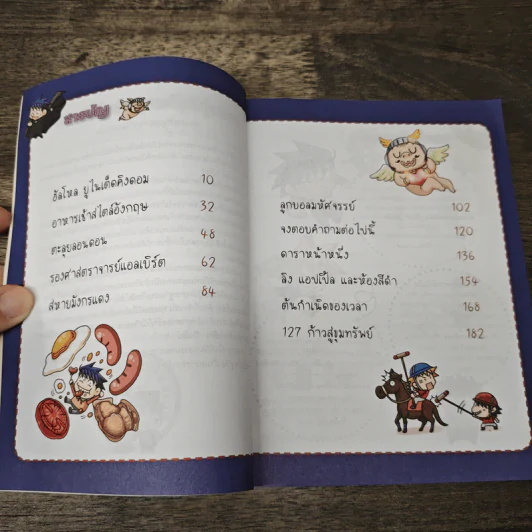 สารบัญ
ฮัลโหล ยูไนเต็ดคิงดอม 10
อาหารเช้าสไตล์อังกฤษ 32
ตะลุยลอนดอน 48
รองศาสตราจารย์แอลเบิร์ต 62
สหายมังกรแดง 84
ลูกบอลมหัศจรรย์ 102
จงตอบคำถามต่อไปนี้ 120
ดาราหน้าหนึ่ง 136
ลิง แอปเปิ้ล และห้องสีดำ 154
ต้นกำเนิดของเวลา 168
127 ก้าวสู่ขุมทรัพย์ 182